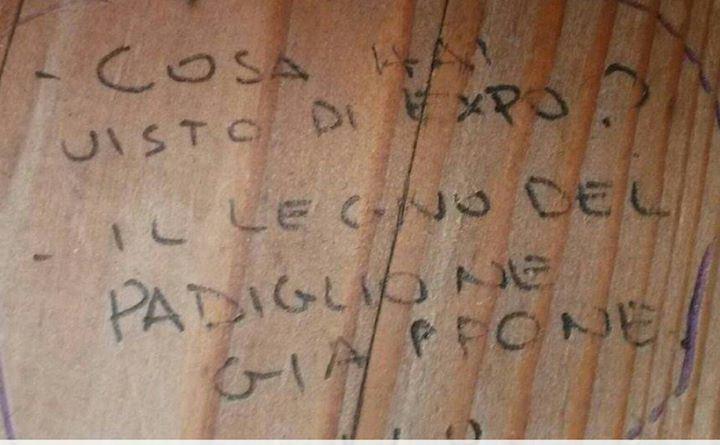 - COSA HAI
VISTO DI EXPO?
- IL LEGNO DEL
PADIGLIONE
GIAPPONE.